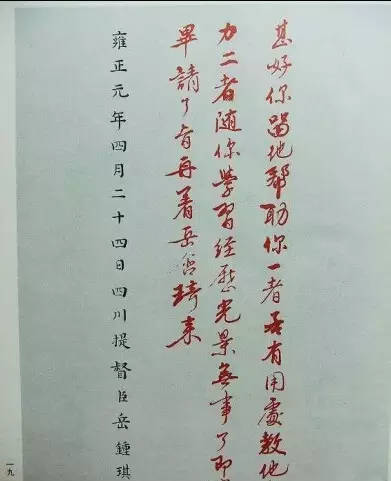 甚好你留他幫助你一者若有用處教他
力二者随你學習經歷光景無事了即
畢請了旨再着岳含琦来
雍正元年四月二十四日四川提督臣岳鍾琪
一九